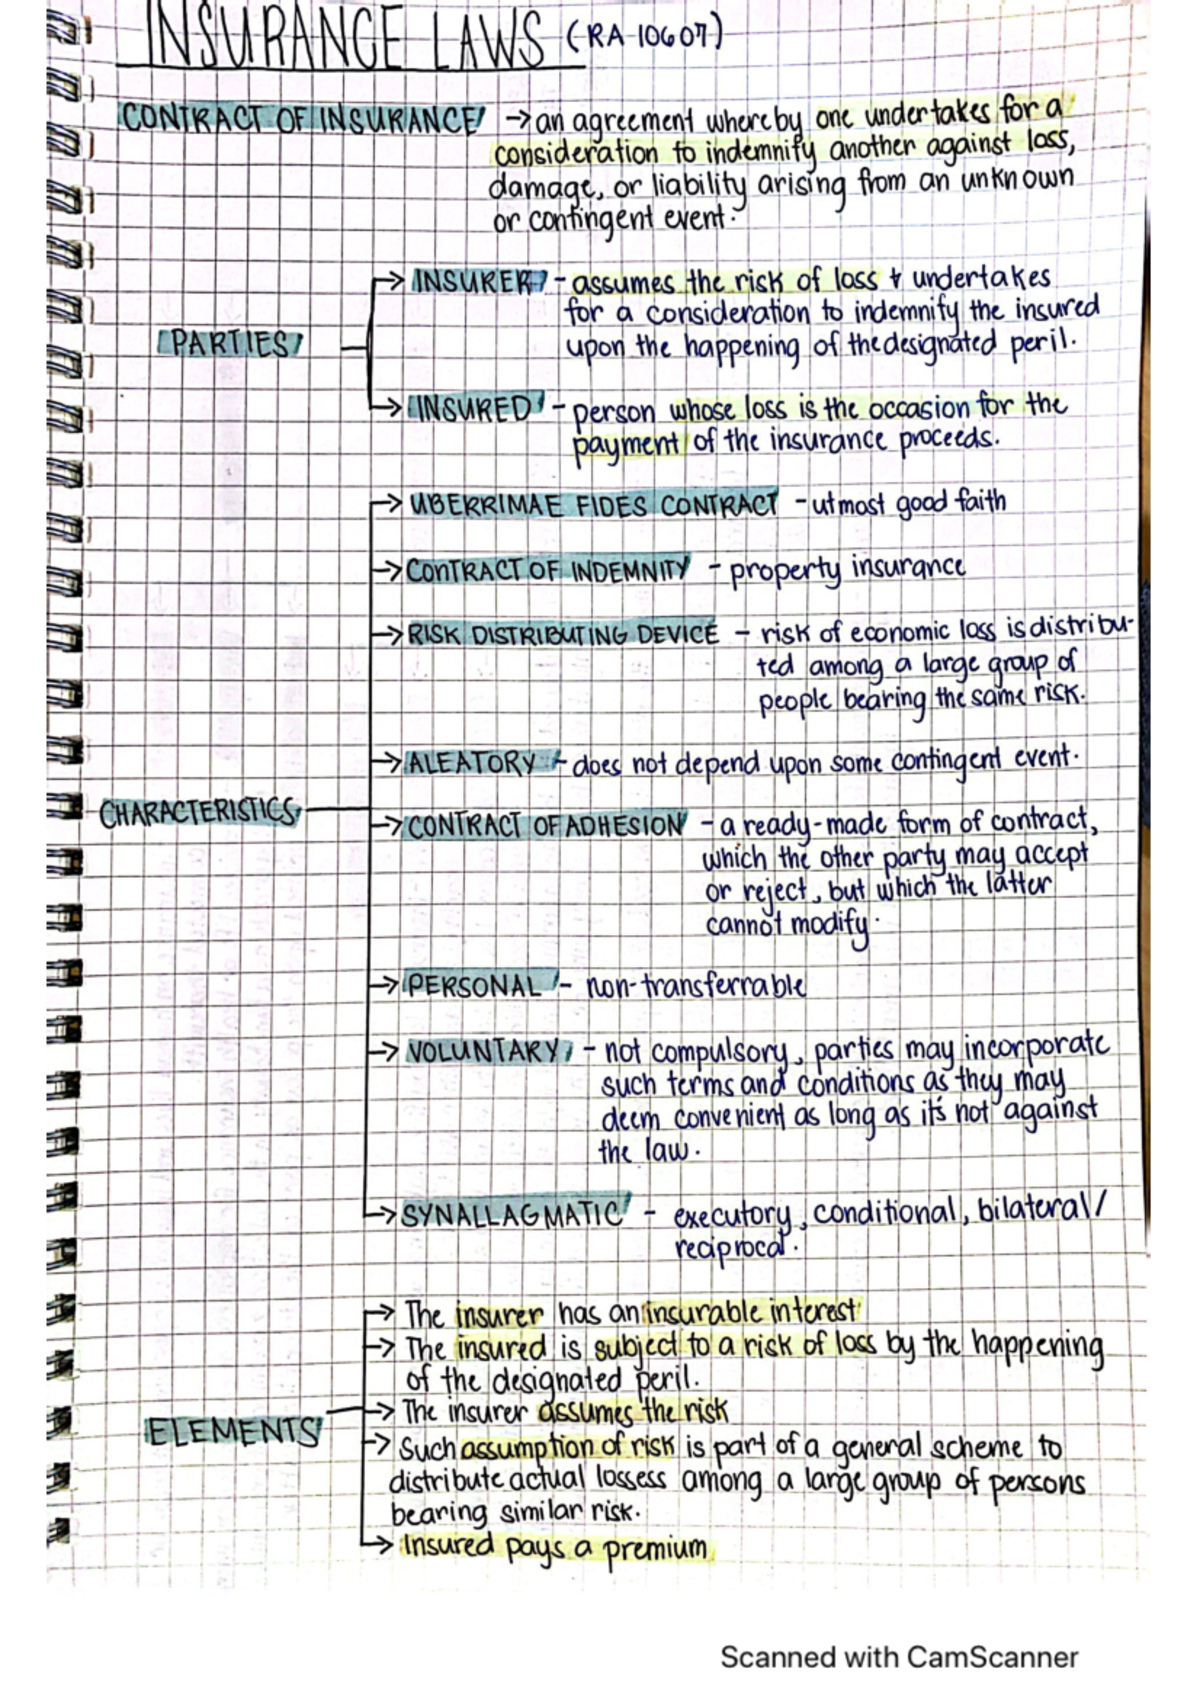 INSURANCE LAWS (RA 10607)
CONTRACT OF INSURANCE → an agreement whereby one undertakes for a
consideration to indemnify another against loss,
damage, or liability arising from an unknown
or contingent event.
PARTIES
→ INSURER - assumes the risk of loss & undertakes
for a consideration to indemnify the insured
upon the happening of the designated peril.
→ INSURED - person whose loss is the occasion for the
payment of the insurance proceeds.
CHARACTERISTICS
→ UBERRIMAE FIDES CONTRACT - utmost good faith
→ CONTRACT OF INDEMNITY - property insurance
→ RISK DISTRIBUTING DEVICE - risk of economic loss is distribu-
ted among a large group of
people bearing the same risk.
→ ALEATORY - does not depend upon some contingent event.
→ CONTRACT OF ADHESION - a ready-made form of contract,
which the other party may accept
or reject, but which the latter
cannot modify.
→ PERSONAL - non-transferrable
→ VOLUNTARY - not compulsory, parties may incorporate
such terms and conditions as they may
deem convenient as long as it's not against
the law.
→ SYNALLAGMATIC - executory, conditional, bilateral/
reciprocal.
ELEMENTS
→ The insurer has an insurable interest
→ The insured is subject to a risk of loss by the happening
of the designated peril.
→ The insurer assumes the risk
→ Such assumption of risk is part of a general scheme to
distribute actual lossess among a large group of persons
bearing similar risk.
→ Insured pays a premium
Scanned with CamScanner